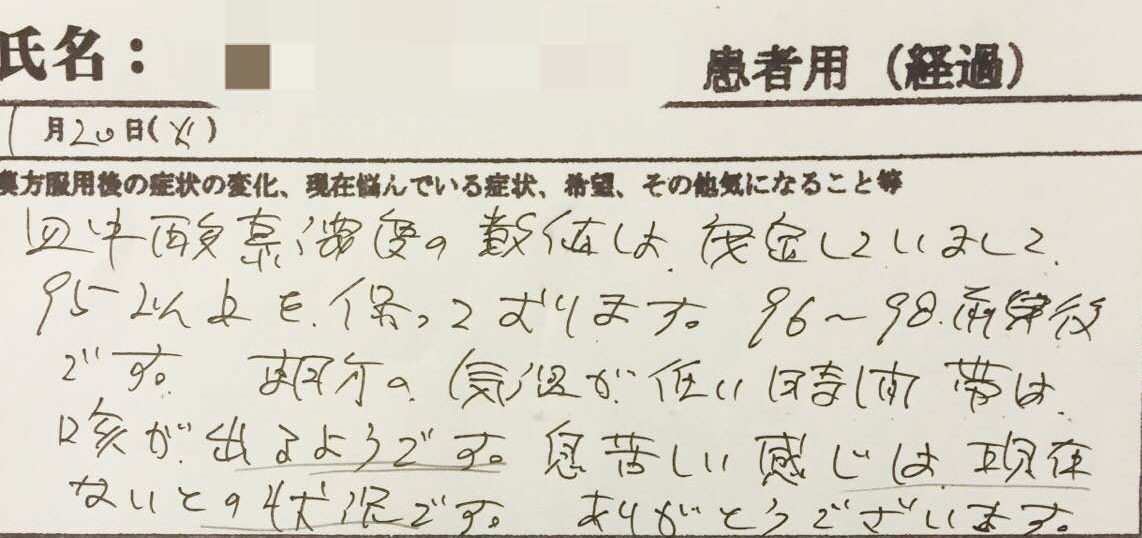 氏名：
患者用（経過）
1月20日(火)
漢方服用後の症状の変化、現在悩んでいる症状、希望、その他気になること等
血中酸素濃度の数値は、安定していまして、
95以上を、保っております。96〜98.前後
です。 朝方の気温が低い時間帯は、
咳が出るようです。息苦しい感じは、現在
ないとの状況です。 ありがとうございます。